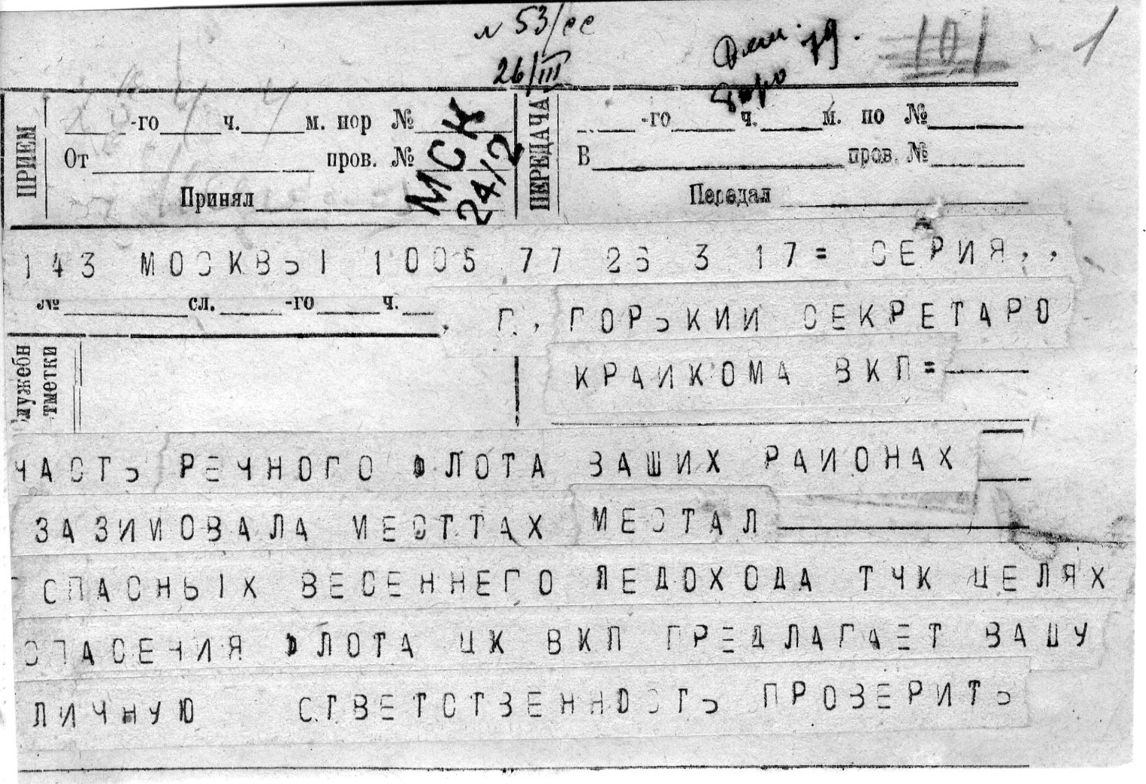 N 53/сс
26/III
101 1
ПРИЕМ
-го ч. м. пор №
От пров. №
Принял
МСК
24/2
ПЕРЕДАЧА
-го ч. м. по №
В пров. №
Передал
143 МОСКВЫ 1005 77 26 3 17= СЕРИЯ,,
№ сл. -го ч.
, Г, ГОРЬКИИ СЕКРЕТАРО
КРАИКОМА ВКП=
лужебн
тметки
ЧАСТЬ РЕЧНОГО ФЛОТА ВАШИХ РАИОНАХ
ЗАЗИМОВАЛА МЕСТТАХ МЕСТАЛ
ОПАСНЫХ ВЕСЕННЕГО ЛЕДОХОДА ТЧК ЦЕЛЯХ
СПАСЕНИЯ ФЛОТА ЦК ВКП ПРЕДЛАГАЕТ ВАШУ
ЛИЧНУЮ СТВЕТСТВЕННОСТЬ ПРОВЕРИТЬ